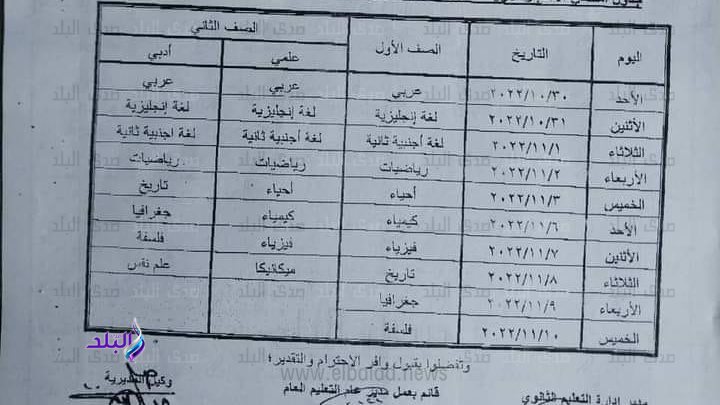 اليوم التاريخ الصف الأول الصف الثاني
علمي أدبي
الأحد ٢٠٢٢/١٠/٣٠ عربي عربي عربي
الأثنين ٢٠٢٢/١٠/٣١ لغة إنجليزية لغة إنجليزية لغة إنجليزية
الثلاثاء ٢٠٢٢/١١/١ لغة أجنبية ثانية لغة أجنبية ثانية لغة اجنبية ثانية
الأربعاء ٢٠٢٢/١١/٢ رياضيات رياضيات رياضيات
الخميس ٢٠٢٢/١١/٣ أحياء أحياء تاريخ
الأحد ٢٠٢٢/١١/٦ كيمياء كيمياء جغرافيا
الأثنين ٢٠٢٢/١١/٧ فيزياء فيزياء فلسفة
الثلاثاء ٢٠٢٢/١١/٨ تاريخ ميكانيكا علم نفس
الأربعاء ٢٠٢٢/١١/٩ جغرافيا
الخميس ٢٠٢٢/١١/١٠ فلسفة
البلد
وتفضلوا بقبول وافر الاحترام والتقدير؛
www.elbalad.news
مدير إدارة التعليم الثانوي قائم بعمل مدير عام التعليم العام وكيل المديرية
صدى البلد